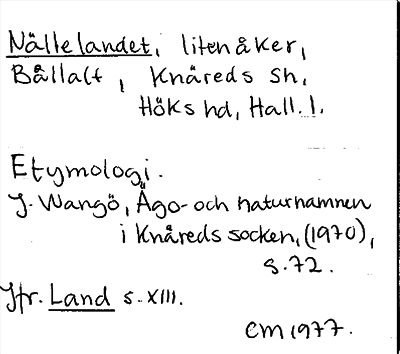 Nällelandet, liten åker,
Bållalt, Knäreds sn,
Höks hd, Hall. l.
Etymologi.
J. Wangö, Ägo- och naturnamnen
i Knäreds socken, (1970),
s. 72.
Jfr. Land s. XIII.
CM 1977.